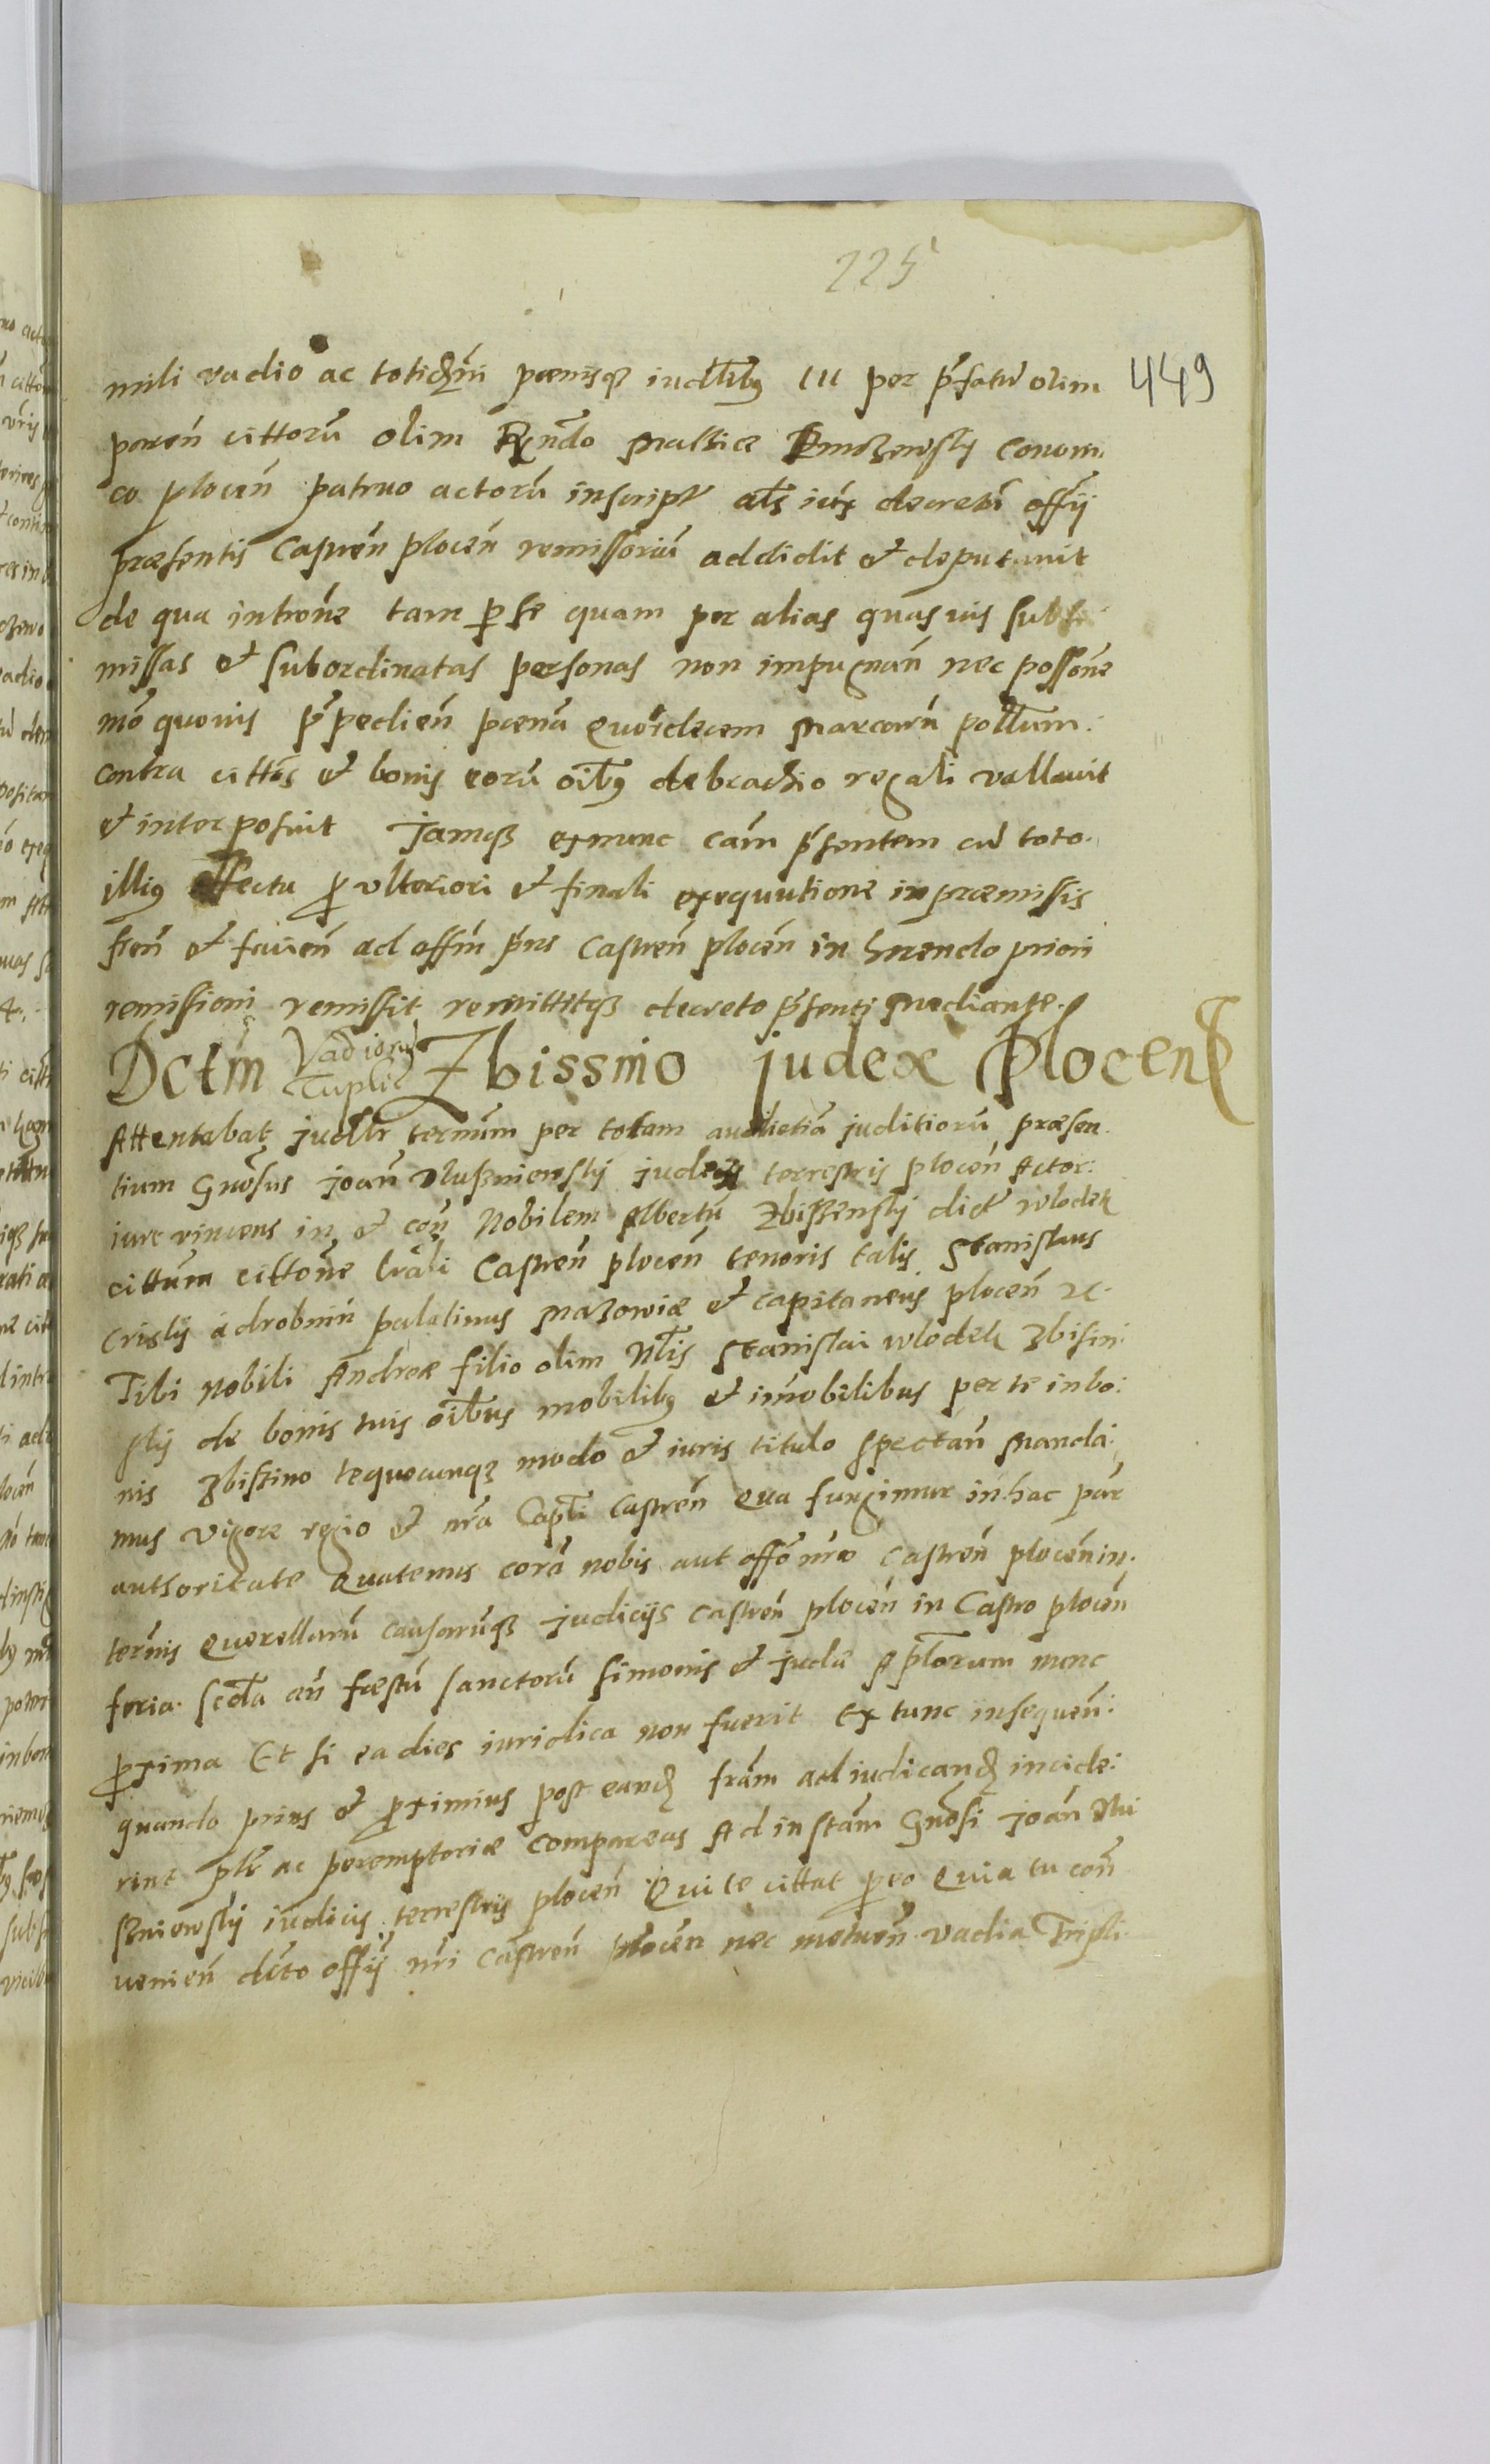 225
449
mili vadio ac totidem pœnisq iudlibus per pr̃fatũ olim
paren̄ cittorũ olim Rx̄ndo Mathia canoni
co plocen̄ patruo actorũ inscript al̃s iux decretũ offij
præsentis Castren̄ plocen̄ remissoriũ addidit et deputauit
de qua intron̄e tam p se quam per alias quasuis sub
missas et subordinatas personas non impugnan̄ nec possione
mō quouis p̃pedien̄ pœnā quordecem Marcarũ polltum
contra cittōs et bonis eorũ oībus de brachio regali vallauit
et interposuit Jamq exnunc cām p̃sentem cū toto
illius effectu p ulteriori et finali exequutione in præmissis
fien̄ et fauen̄ ad offm̄ p̃ns Castren̄ plocen̄ in hærendo priori
remissioni remissit remittitq decreto p̃senti Mediante
Dctm̄ Vadiorũ Tuplic Zbissino judex Plocen̄
Attentabat judlr ternũm per totam audietiā juditiorũ præsen
tium Gn̄osus joan̄ Dluszniewskij judex terrestris plocen̄ Actor
iure vincens in et con̄ Nobilem Albertũ Zbiszenskij dict Wlodek
cittum citton̄e lr̃ali Castren̄ plocen̄ tenoris talis Stanislaus
Criskij a drobnin palatinus Mazowiæ et capitaneus plocen̄ ꝛc
Tibi Nobili Andreæ filio olim Nlis Stanislai wlodek Zbisin
skij de bonis tuis oībus mobilibus et im̄obilibus per te in bo
nis Zbistino tequocunq modo et iuris titulo spectan̄ Manda
mus vigore regio et nr̃a Capli Castren̄ qua fungimur in hac par
authoritate Quatenus corā nobis aut offō nr̃o Castren̄ plocen̄ in
ternis Querellarũ causarũq Judicijs Castren̄ plocen̄ in Castro plocen̄
feria scda an̄ festũ sanctorũ Simonis et Judæ Aplorum nunc
pxima Et si ea dies iuridica non fuerit Ex tunc insequen̄
quando prius et pximius post eand fr̃am ad iudicand incide
rint plr ac peremptoriæ compareas Ad instām Gn̄osi joan̄ Dlu
sznieuskij iudicis terrestris plocen̄ Qui te cittat p eo Quia tu con
uenien̄ dcto offij nr̃i Castren̄ plocen nec metuen̄ vadia Tripli